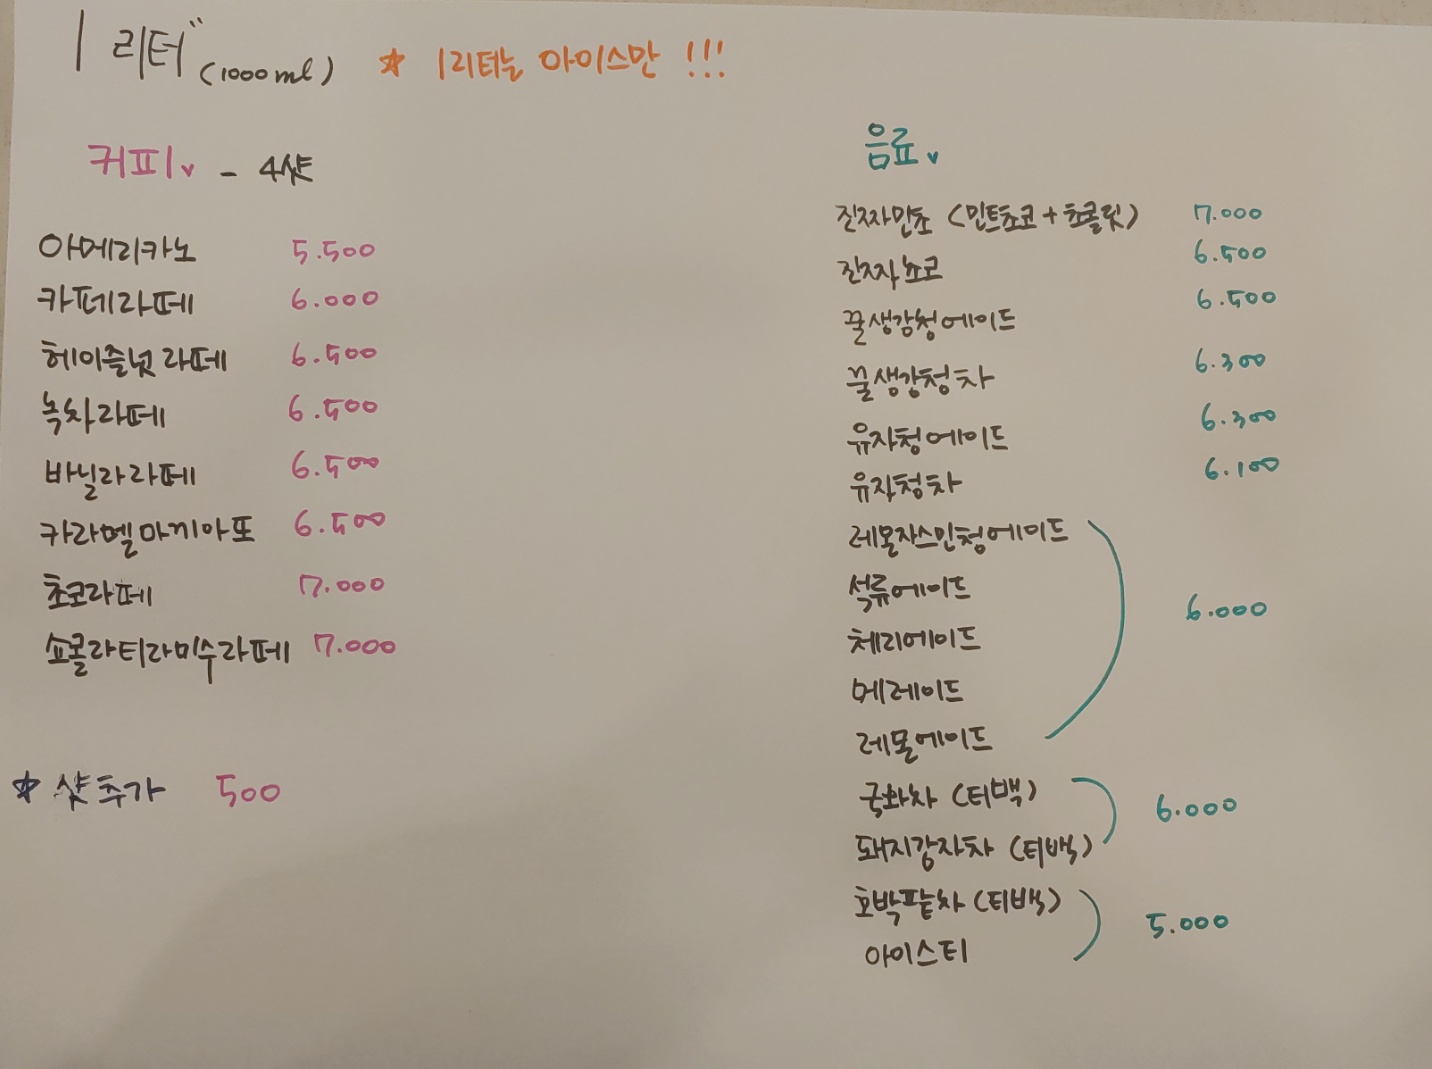 1리터" (1000ml) ☆ 1리터는 아이스만 !!!
커피v - 4샷
아메리카노 5.500
카페라떼 6.000
헤이즐넛라떼 6.500
녹차라떼 6.500
바닐라라떼 6.500
카라멜마끼아또 6.500
초코라떼 7.000
쇼콜라티라미수라떼 7.000
☆ 샷추가 500
음료v
진짜민초 (민트초코+초콜릿) 7.000
진짜쵸코 6.500
꿀생강청에이드 6.500
꿀생강청차 6.300
유자청에이드 6.300
유자청차 6.100
레몬자스민청에이드
석류에이드
체리에이드 6.000
메레이드
레몬에이드
국화차 (티백)
돼지감자차 (티백) 6.000
호박팥차 (티백)
아이스티 5.000